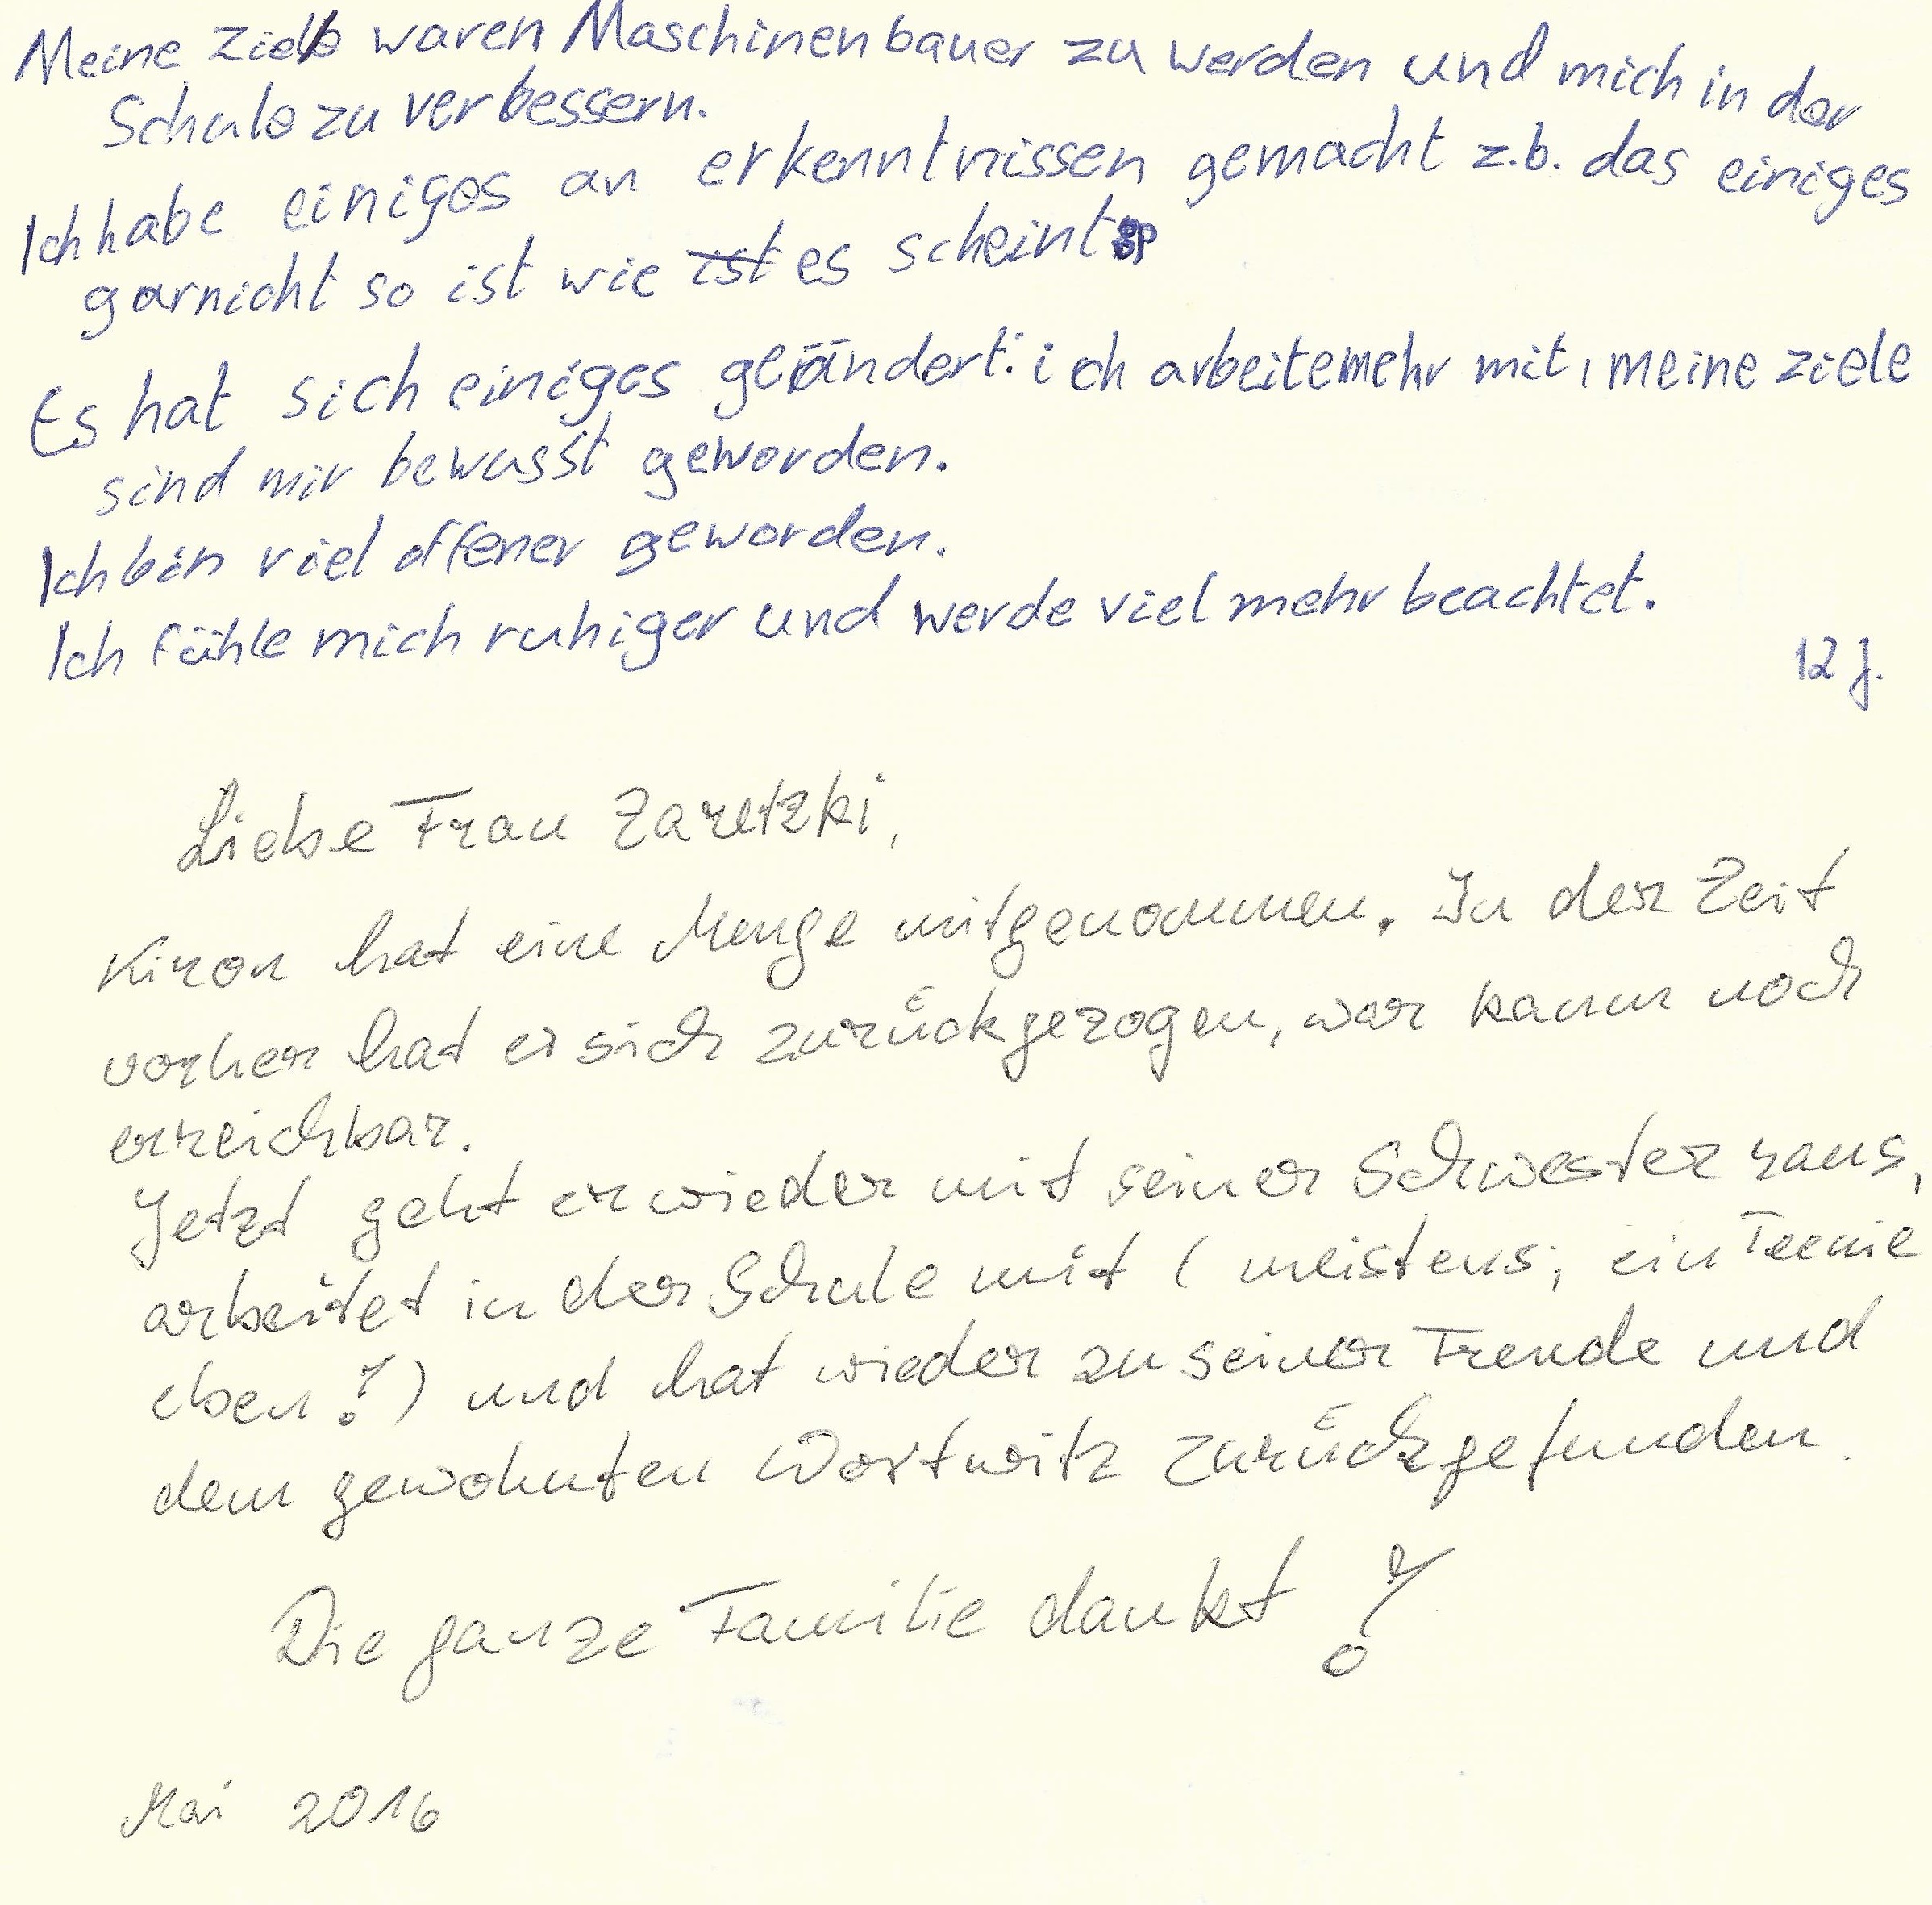 Meine ziele waren Maschinenbauer zu werden und mich in der
Schule zu verbessern.
Ich habe einiges an erkenntnissen gemacht z.b. das einiges
garnicht so ist wie ist es scheint
Es hat sich einiges geändert: ich arbeite mehr mit, meine ziele
sind mir bewusst geworden.
Ich bin viel offener geworden.
Ich fühle mich ruhiger und werde viel mehr beachtet.
12 J.
Liebe Frau Zaretzki,
Kiron hat eine Menge mitgenommen. In der Zeit
vorher hat er sich zurückgezogen, war kaum noch
erreichbar.
Jetzt geht er wieder mit seiner Schwester raus,
arbeitet in der Schule mit (meistens; ein Teenie
eben!) und hat wieder zu seiner Freude und
dem gewohnten Wortwitz zurückgefunden.
Die ganze Familie dankt!
Mai 2016